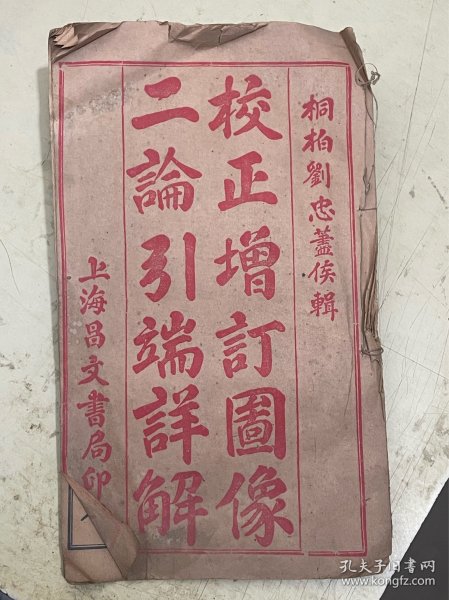 桐柏劉忠藎侯輯
校正增訂圖像
二論引端詳解
上海昌文書局印
孔夫子旧书网
www.kongfz.com